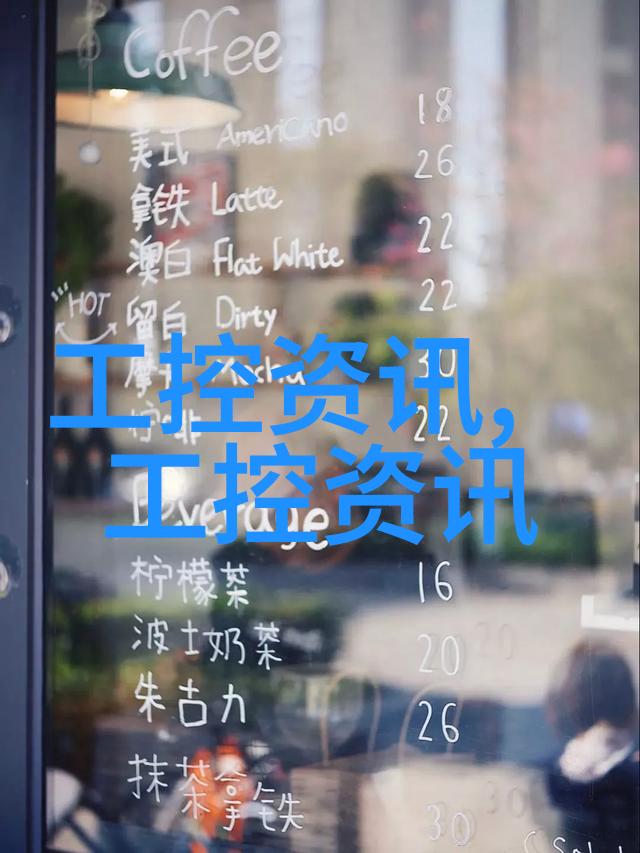 Coffee
美式 Americano 18
拿铁 Latte 26
澳白 Flat White 22
HOT
留白 Dirty 22
摩 Mocha 30
工控资讯,
柠 啡 22
工控资讯
Beverage
柠檬茶 16
波士奶茶 20
朱古力 26
抹茶拿铁 30